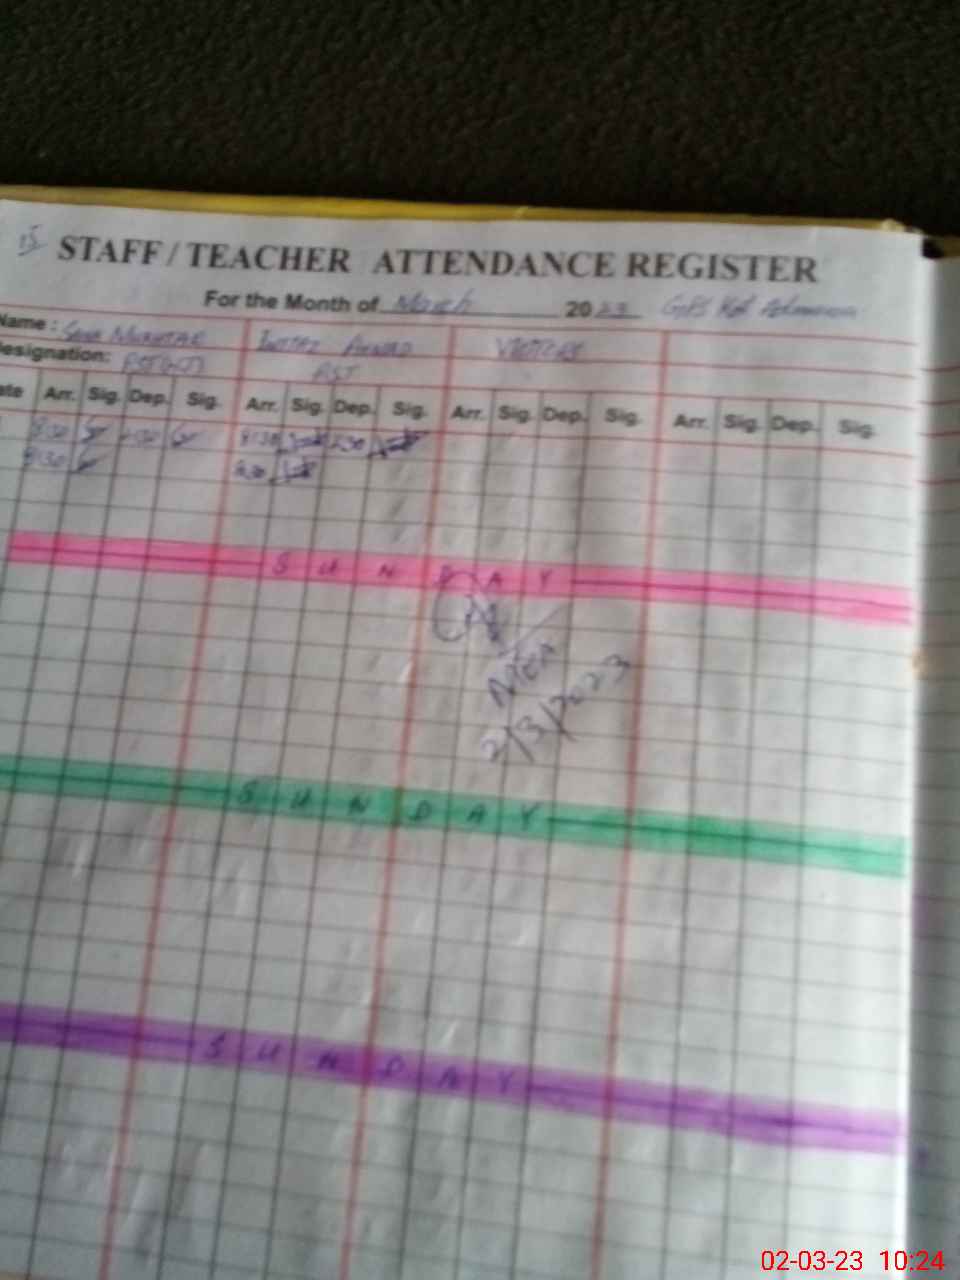 15
STAFF / TEACHER ATTENDANCE REGISTER
For the Month of March 2023 GPS
Name: Sana Mukhtar Ahmad Visitors
Designation: PST
Arr. Sig. Dep. Sig. Arr. Sig. Dep. Sig. Arr. Sig. Dep. Sig. Arr. Sig. Dep. Sig.
8:30 2:30 8:30 2:30
8:30 8:30
SUNDAY
MEA
2/3/2023
SUNDAY
SUNDAY
02-03-23 10:24